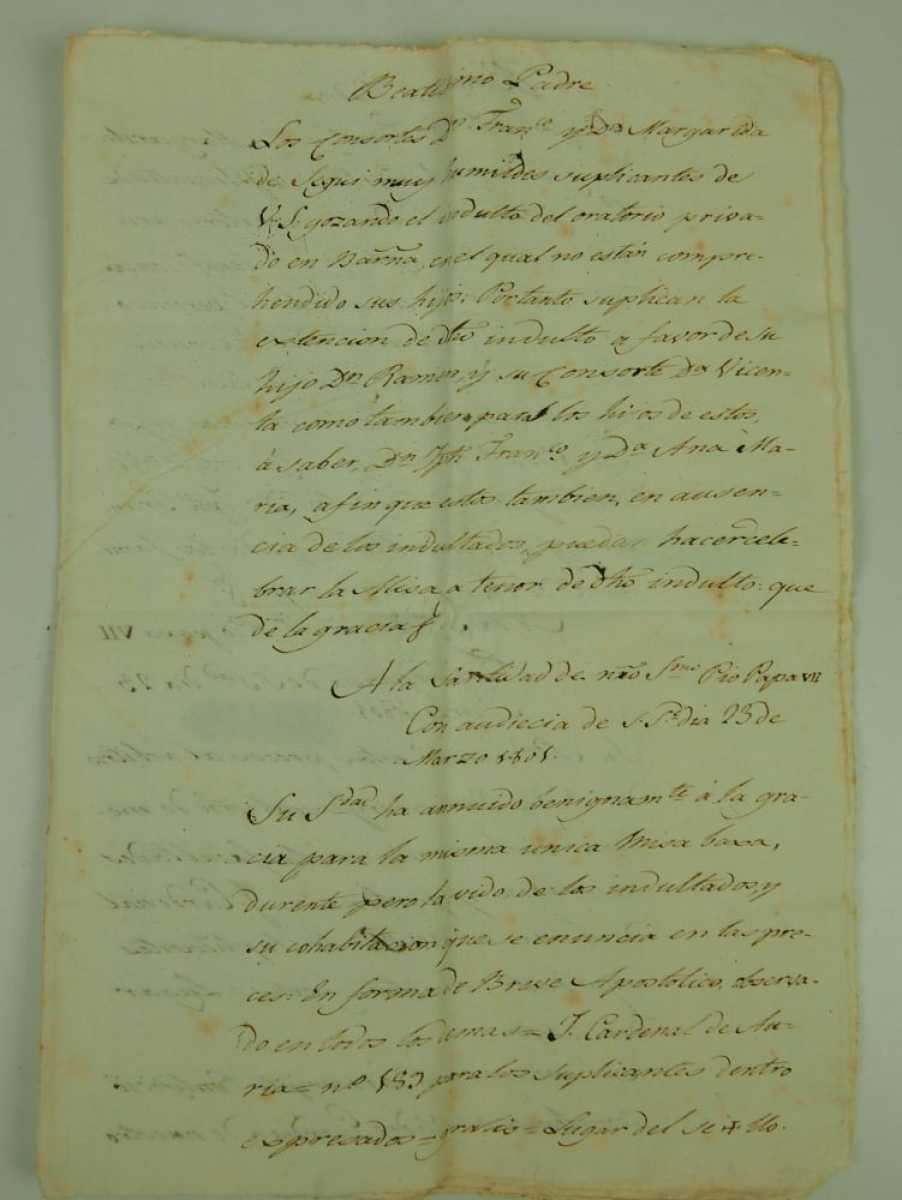 Beatissimo Padre.
Los Consortes Dn. Franco. y Da Margarida
de Segui muy humildes suplicantes de
V.S. gozando el indulto del oratorio priva-
do en Barña, en el qual no están compre-
hendido sus hijos: Portanto suplican la
extencion de dho indulto a favor de su
hijo Dn Ramon, y su Consorte Da Vicen-
ta como tambien para los hijos de estos,
á saber, Dn Jph. Franco y Da Ana Ma-
ria, afinque estos tambien, en ausen-
cia de los indultados, puedan hacer cele-
brar la Misa a tenor de dho indulto: que
de la gracia &.
A la Santidad de nro Smo Pio Papa VII
Con audiecia de S. Sd. dia 23 de
Marzo 1801.
Su Sdad. ha annuido benignamte á la gra-
cia para la misma única Misa baxa,
durente pero la vida de los indultados, y
su cohabitacion que se enuncia en las pre-
ces: En forma de Breve Apostólico, observa-
do en todos los demas = J. Cardenal de Au-
ria = no 183 para los suplicantes dentro
expresados = gratis = Lugar del se + llo.